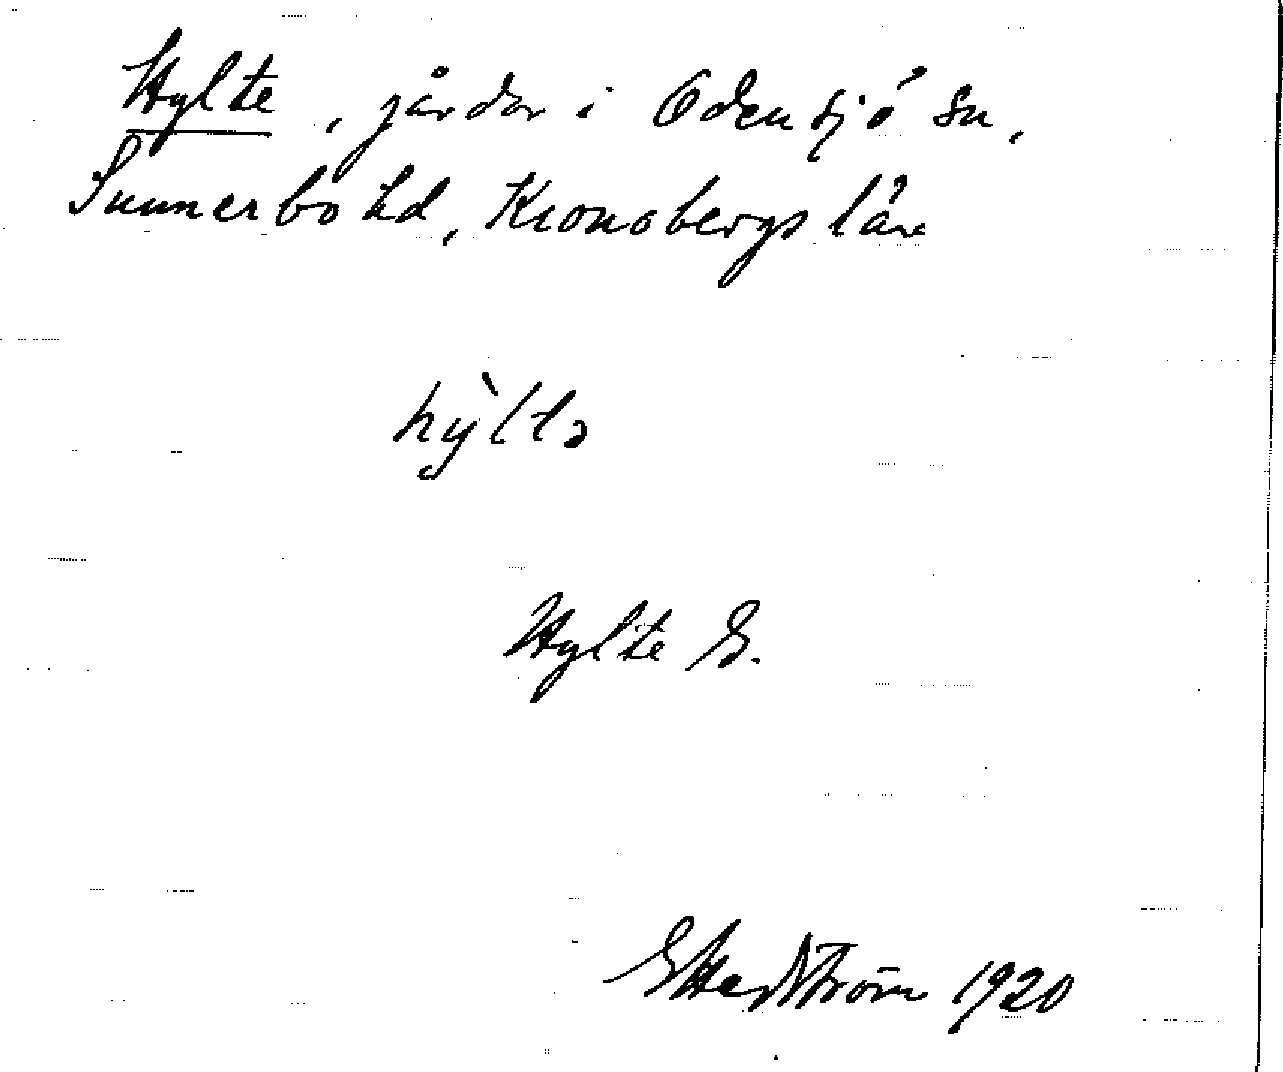 Hylte, gårdar i Odensjö sn,
Sunnerbo hd, Kronobergs län
hỳltə
Hylte E.
E Hedström 1920